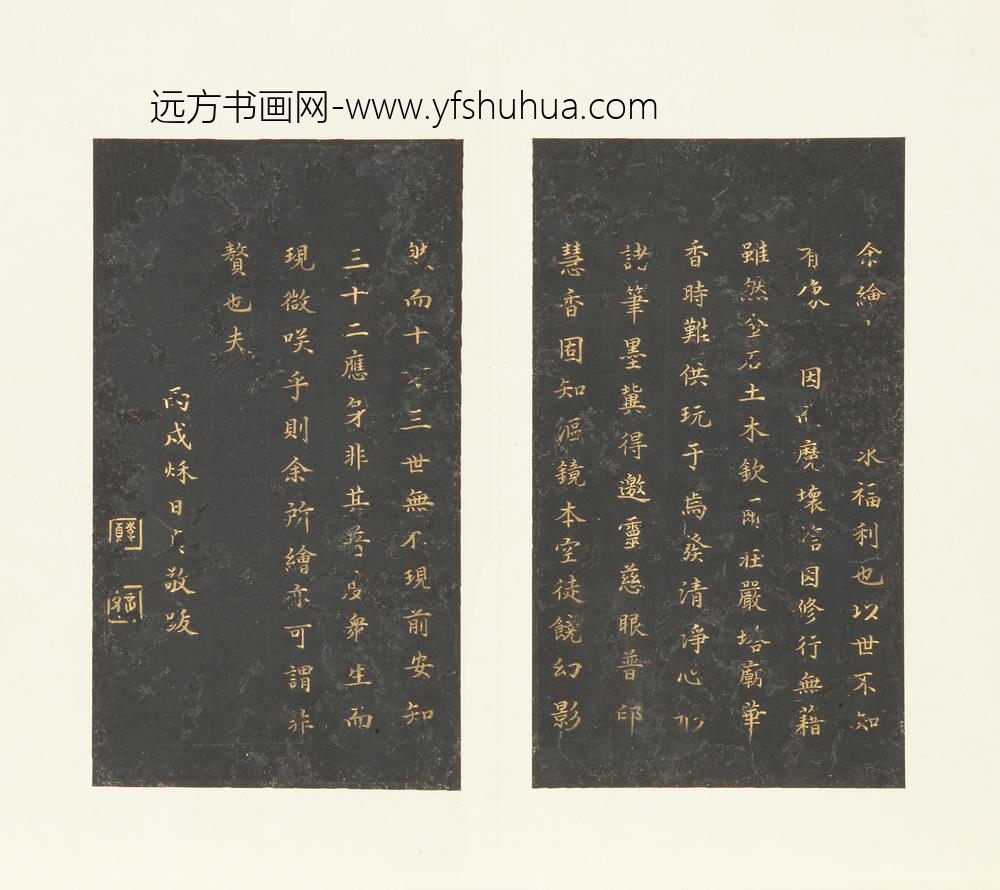 远方书画网-www.yfshuhua.com
余繪 求福利也以世不知
有像 因 魔壞 因修行無藉
雖然金石土木欽 莊嚴塔廟華
香時難供玩于焉發清淨心
諸筆墨冀得邀靈慈眼普印
慧香固知漚鏡本空徒饒幻影
然而十方三世無不現前安知
三十二應身非其 度衆生而
現微咲乎則余所繪亦可謂非
贅也夫
丙戌秌日 敬跋